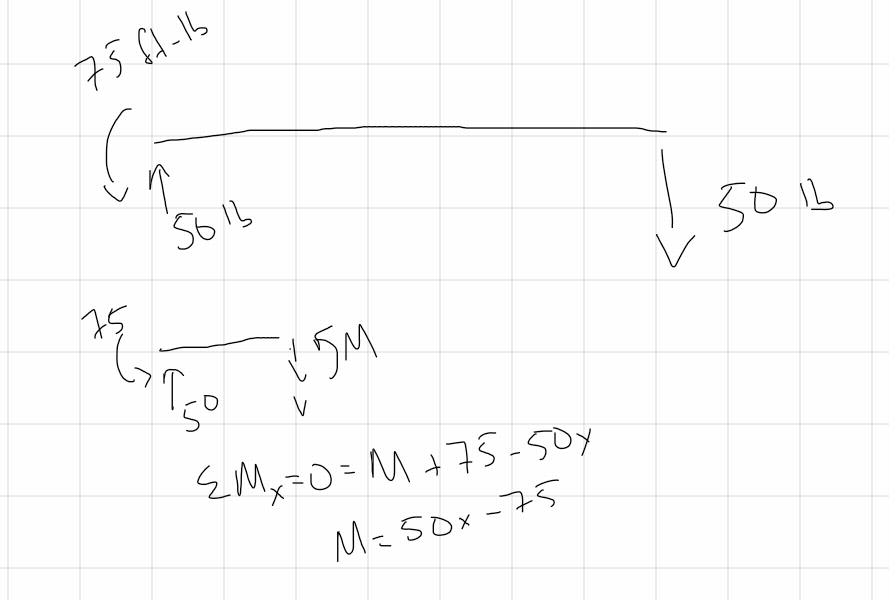 75 ft-lb
50 lb
50 lb
75
50
V
M
ΣMx=0=M+75-50x
M=50x-75